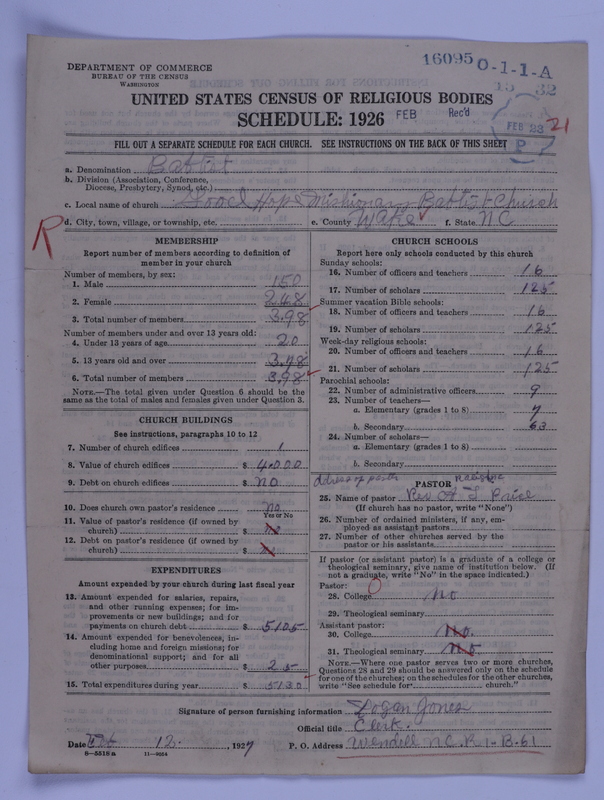 16095 O-1-1-A
15 32
DEPARTMENT OF COMMERCE
BUREAU OF THE CENSUS
WASHINGTON
UNITED STATES CENSUS OF RELIGIOUS BODIES
SCHEDULE: 1926 FEB Rec'd
FEB 23 21
P
FILL OUT A SEPARATE SCHEDULE FOR EACH CHURCH. SEE INSTRUCTIONS ON THE BACK OF THIS SHEET
a. Denomination Babtist
b. Division (Association, Conference,
Diocese, Presbytery, Synod, etc.)
c. Local name of church Good Hope Missionary Babtist Church
R
d. City, town, village, or township, etc. e. County Wake f. State NC
MEMBERSHIP
Report number of members according to definition of
member in your church
Number of members, by sex:
1. Male 150
2. Female 248
3. Total number of members 398
Number of members under and over 13 years old:
4. Under 13 years of age 20
5. 13 years old and over 378
6. Total number of members 398
NOTE.—The total given under Question 6 should be the
same as the total of males and females given under Question 3.
CHURCH BUILDINGS
See instructions, paragraphs 10 to 12
7. Number of church edifices 1
8. Value of church edifices $ 4000
9. Debt on church edifices $ no
10. Does church own pastor's residence no
Yes or No
11. Value of pastor's residence (if owned by
church) $
12. Debt on pastor's residence (if owned by
church) $
EXPENDITURES
Amount expended by your church during last fiscal year
13. Amount expended for salaries, repairs,
and other running expenses; for im-
provements or new buildings; and for
payments on church debt $ 5105
14. Amount expended for benevolences, in-
cluding home and foreign missions; for
denominational support; and for all
other purposes $ 25
15. Total expenditures during year $ 5130
CHURCH SCHOOLS
Report here only schools conducted by this church
Sunday schools:
16. Number of officers and teachers 16
17. Number of scholars 125
Summer vacation Bible schools:
18. Number of officers and teachers 16
19. Number of scholars 125
Week-day religious schools:
20. Number of officers and teachers 16
21. Number of scholars 125
Parochial schools:
22. Number of administrative officers 9
23. Number of teachers—
a. Elementary (grades 1 to 8) 7
b. Secondary 63
24. Number of scholars—
a. Elementary (grades 1 to 8)
b. Secondary
address of pastor
PASTOR
25. Name of pastor Rev. A T Price
(If church has no pastor, write "None")
26. Number of ordained ministers, if any, em-
ployed as assistant pastors
27. Number of other churches served by the
pastor or his assistants
If pastor (or assistant pastor) is a graduate of a college or
theological seminary, give name of institution below. (If
not a graduate, write "No" in the space indicated.)
Pastor:
28. College no
29. Theological seminary
Assistant pastor:
30. College no.
31. Theological seminary no
NOTE.—Where one pastor serves two or more churches,
Questions 28 and 29 should be answered only on the schedule
for one of the churches; on the schedules for the other churches,
write "See schedule for church."
Signature of person furnishing information Logan Jones
Official title Clerk.
Date Feb 12. , 1927 P. O. Address Wendell NC. R 1-B-61
8—5518a 11—9084